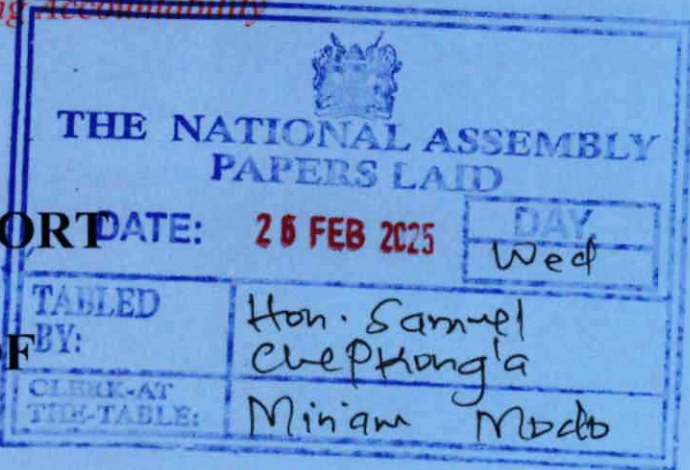 Accountability
THE NATIONAL ASSEMBLY
PAPERS LAID
ORT DATE: 26 FEB 2025 DAY
Wed
TABLED BY: Hon. Samuel
Chepkong'a
F
CLERK-AT THE-TABLE: Miriam Modo